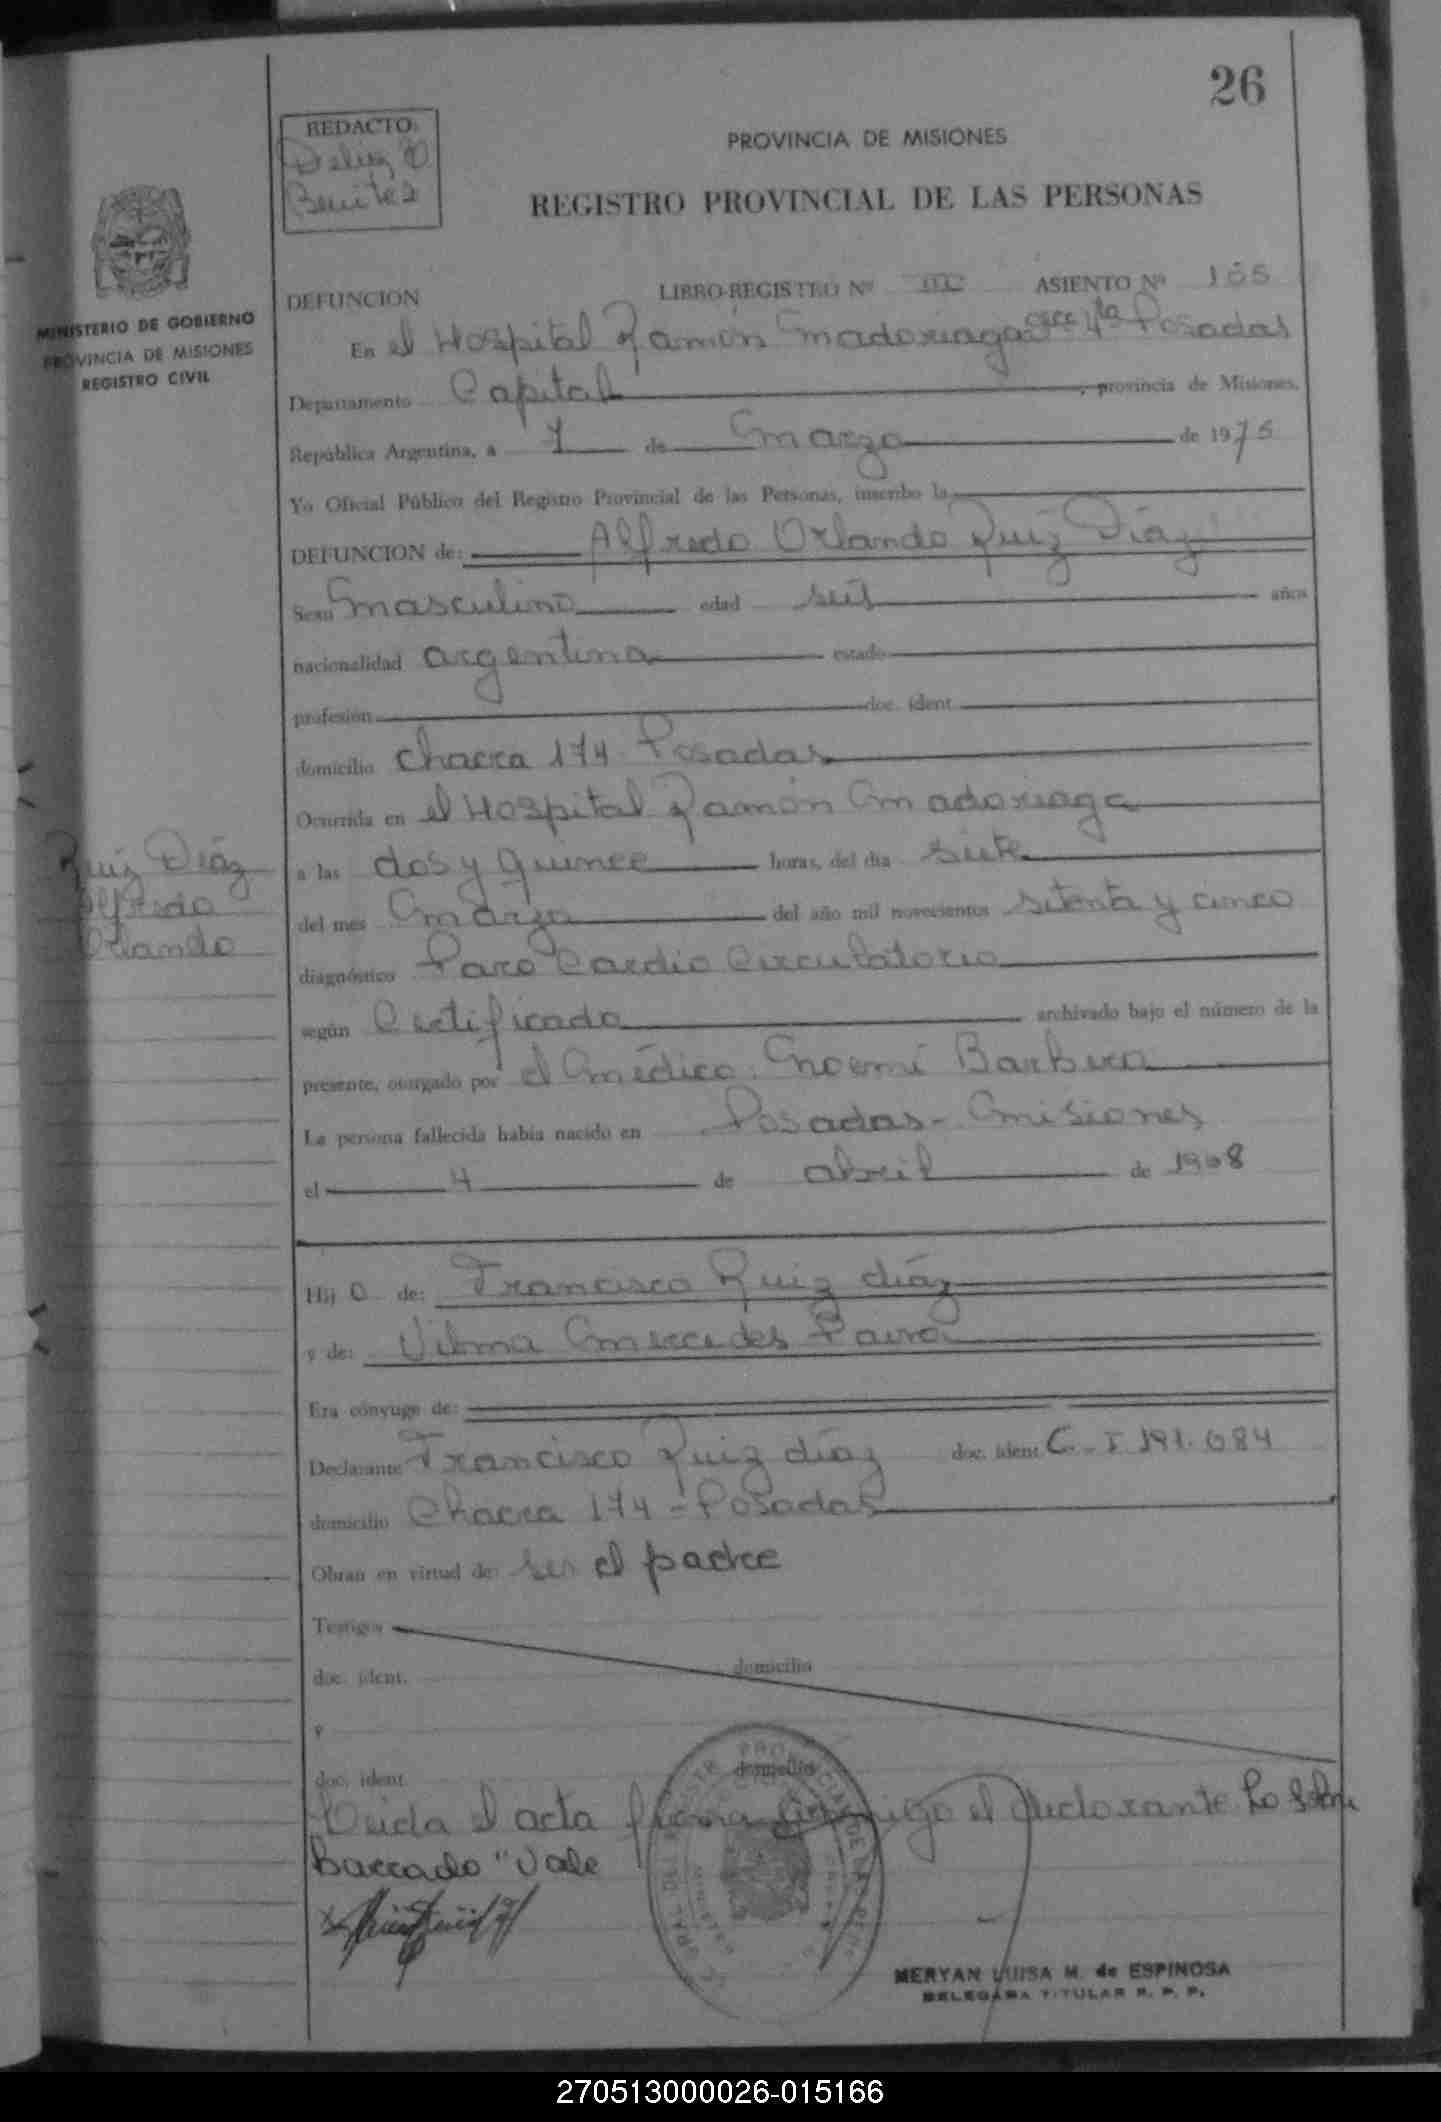 26
REDACTO:
Benites
PROVINCIA DE MISIONES
REGISTRO PROVINCIAL DE LAS PERSONAS
MINISTERIO DE GOBIERNO
PROVINCIA DE MISIONES
REGISTRO CIVIL
DEFUNCION LIBRO-REGISTRO Nº ASIENTO Nº 155
En el Hospital Ramón Madariaga secc 4ta Posadas
Departamento Capital, provincia de Misiones,
República Argentina, a 7 de Marzo de 1975
Yo Oficial Público del Registro Provincial de las Personas, inscribo la
DEFUNCION de: Alfredo Orlando Ruiz Díaz
Sexo Masculino edad seis años
nacionalidad argentina estado
profesión doc. ident.
domicilio Chacra 174 - Posadas
Ocurrida en el Hospital Ramón Madariaga
a las dos y quince horas, del día siete
del mes Marzo del año mil novecientos setenta y cinco
diagnóstico Paro Cardio Circulatorio
según Certificado archivado bajo el número de la
presente, otorgado por el Médico Noemí Barbera
La persona fallecida había nacido en Posadas - Misiones
el 4 de abril de 1968
Ruiz Díaz
Alfredo
Orlando
Hij o de: Francisco Ruiz díaz
y de: Vilma Mercedes Paiva
Era cónyuge de:
Declarante Francisco Ruiz díaz doc. ident. C. I 191.684
domicilio Chacra 174 - Posadas
Obran en virtud de: ser el padre
Testigos
doc. ident. domicilio
y
doc. ident. domicilio
Leida el acta firma conmigo el declarante. Lo sobre
Barrado "Vale
MERYAN LUISA M. de ESPINOSA
DELEGADA TITULAR R. P. P.
270513000026-015166